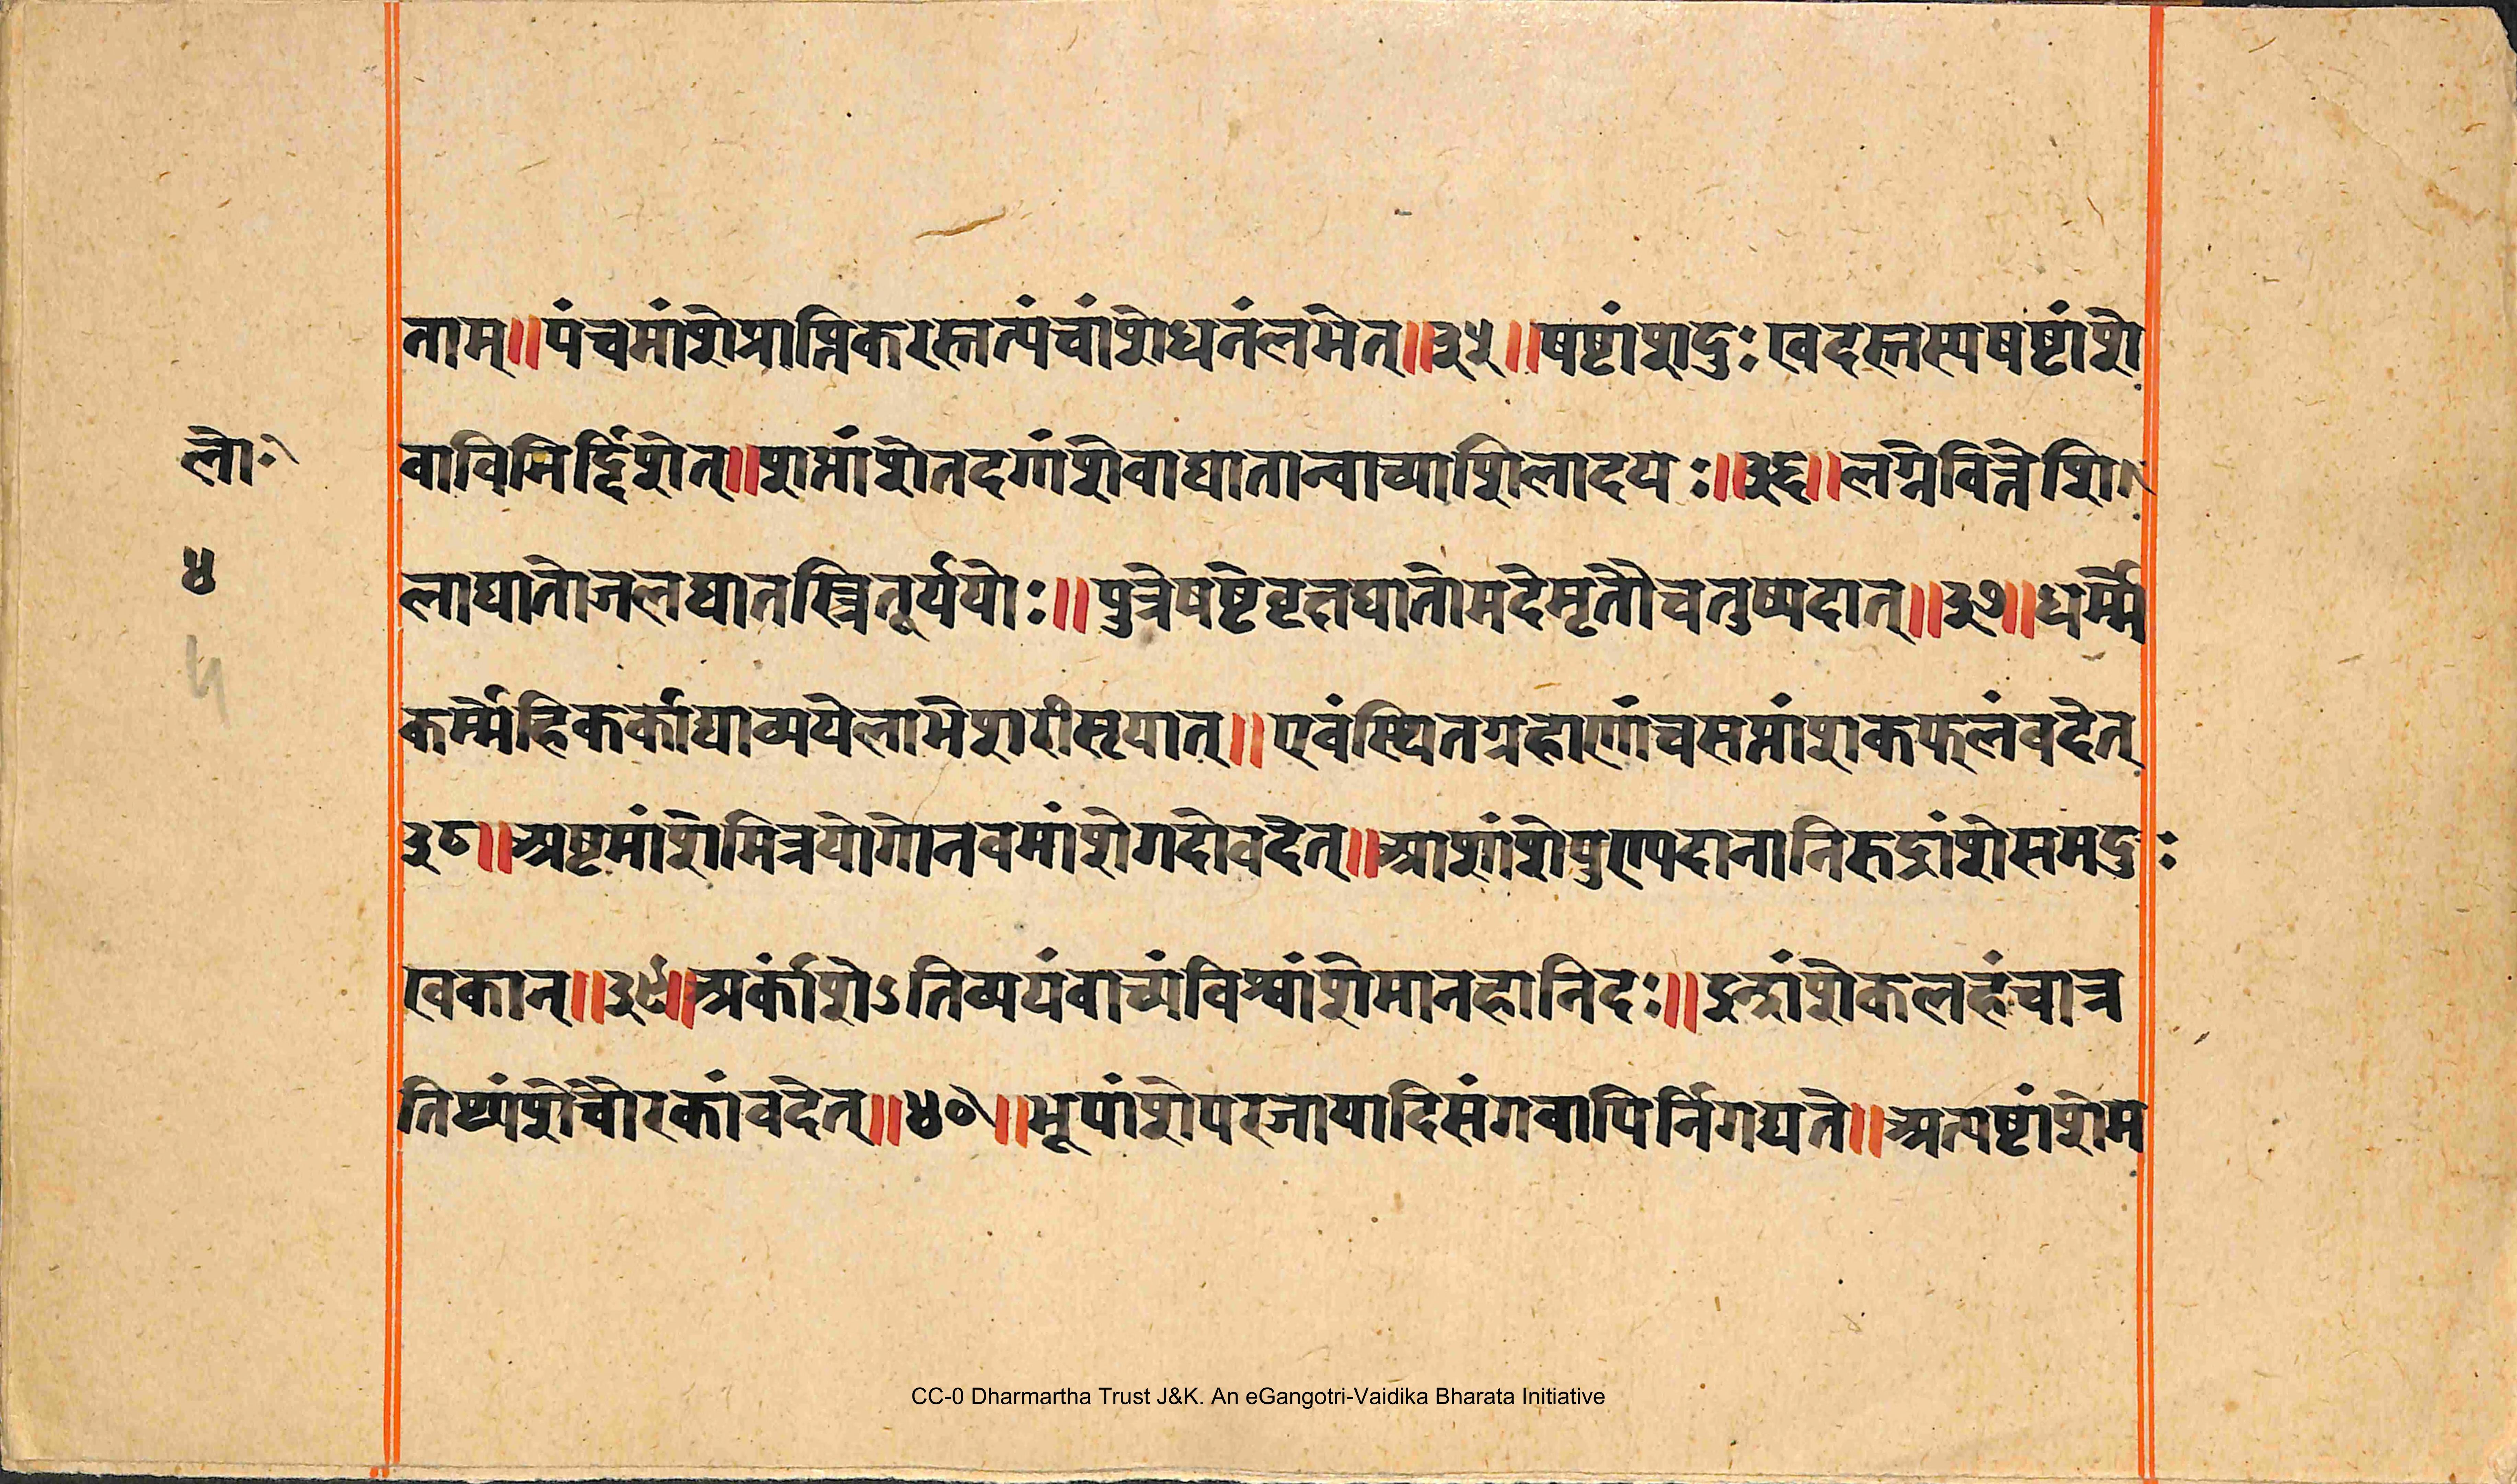 ताम्॥पंचमांशेप्राप्तिकरस्तत्पंचांशेधनंलभेत्॥३५॥षष्टांशदुःखदस्तस्यषष्टांशे
वाविमिर्द्दिशेत्॥शप्तांशेतदगांशेवाघातान्वाच्याशिलादयः॥३६॥लग्नेवित्तेशि
लाघातोजलघातस्त्रितूर्ययोः॥पुत्रेषष्टेवृक्षघातोमदेमृतौचतुष्पदात्॥३७॥धर्म्मे
कर्म्मेहिकर्काघाव्ययेलाभेशरीसृपात्॥एवंस्थितग्रहाणांचसप्तांशकफलंवदेत्
३८॥अष्टमांशेमित्रयोगोनवमांशेगदोवदेत्॥आशांशेपुण्यदानानिरुद्रांशेसमदुः
खकान्॥३९॥अर्कांशेऽतिव्ययंवाच्यंविश्वांशेमानहानिदः॥इन्द्रांशेकलहंचात्र
तिथ्यंशेचौरकांवदेत्॥४०॥भूपांशेपरजायादिसंगवापिर्निगद्यते॥अत्यष्टांशेम
लोः
४
५
CC-0 Dharmartha Trust J&K. An eGangotri-Vaidika Bharata Initiative